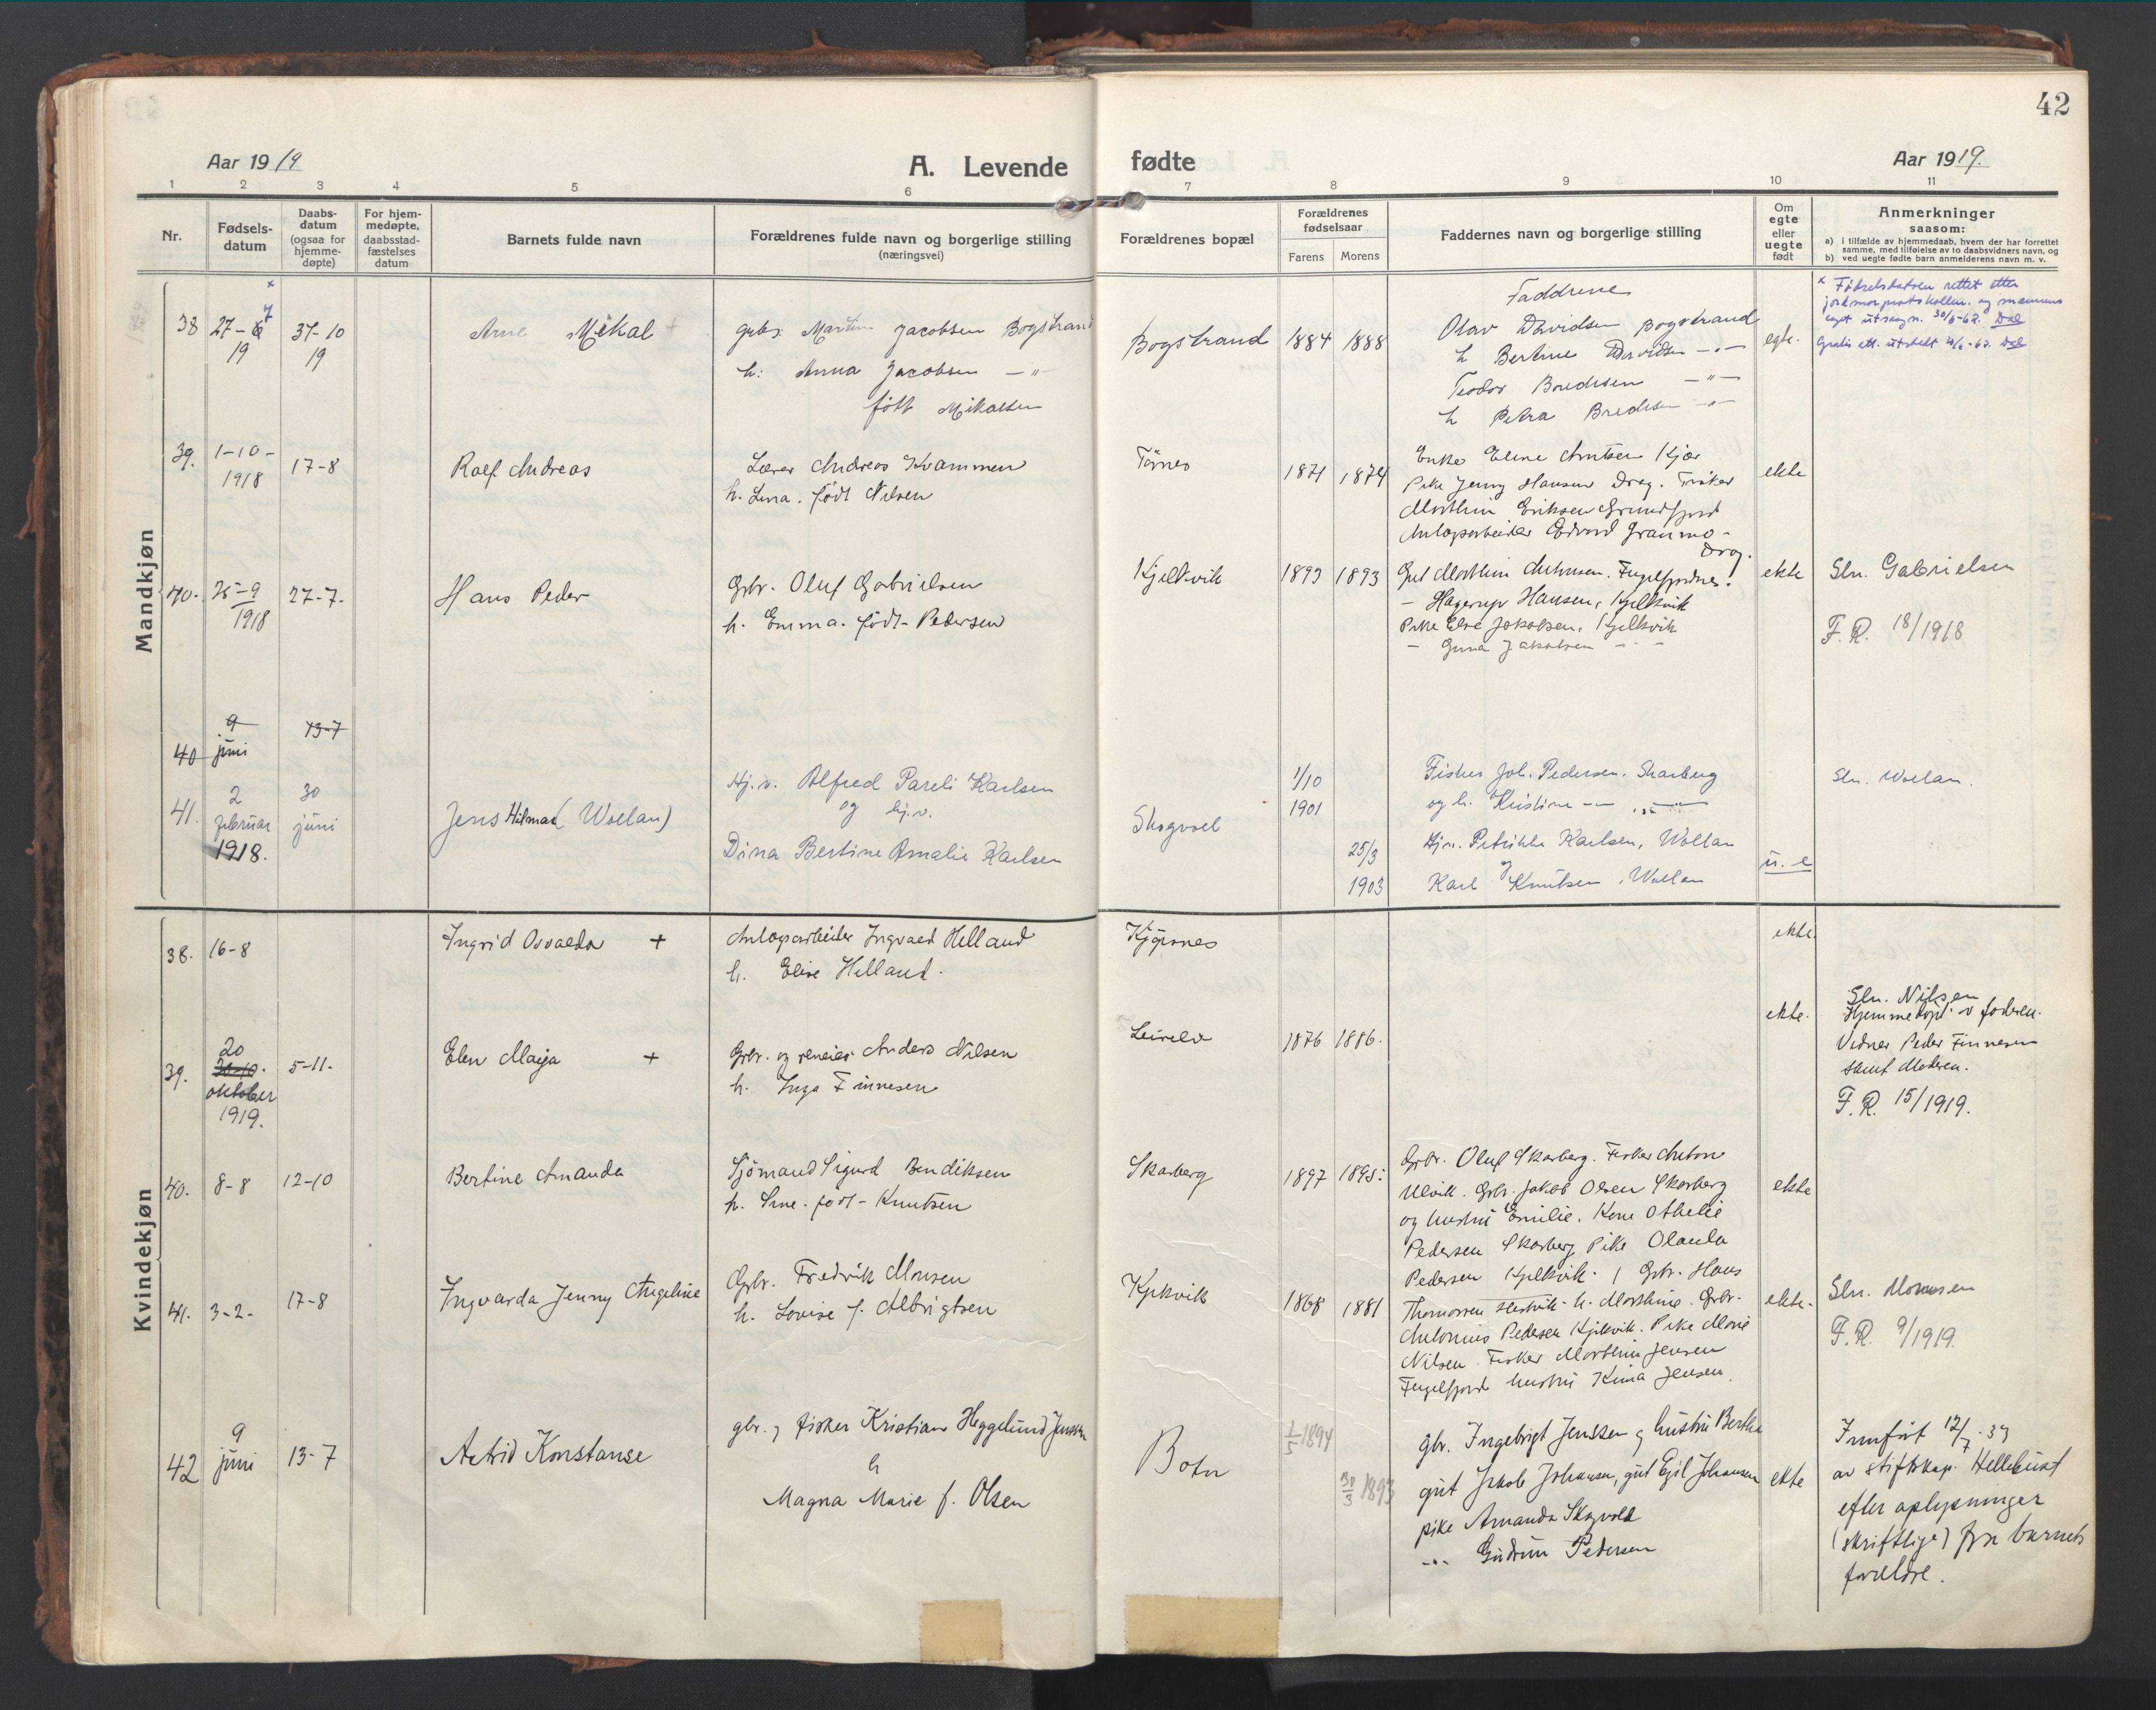 42
Aar 1919
A. Levende fødte
Aar 1919.
1 2 3 4 5 6 7 8 9 10 11
Nr.
Fødsels-
datum
Daabs-
datum
(ogsaa for
hjemme-
døpte)
For hjem-
medøpte,
daabsstad-
fæstelses
datum
Barnets fulde navn
Forældrenes fulde navn og borgerlige stilling
(næringsvei)
Forældrenes bopæl
Forældrenes
fødselsaar
Farens Morens
Faddernes navn og borgerlige stilling
Om
egte
eller
uegte
født
Anmerkninger
saasom:
a) i tilfælde av hjemmedaab, hvem der har forrettet
samme, med tilføielse av to daabsvidners navn, og
b) ved uegte fødte barn anmelderens navn m. v.
Mandkjøn
38
27-
7
19
31-10
19
Arne Mikal +
gbr. Martin Jacobsen Bogstrand
h: Anna Jacobsen —"—
født Mikalsen
Bogstrand
1884 1888
Faddrene
Olav Davidsen Bogstrand
h Bertine Davidsen —"—
Teodor Bredesen —"—
h Petra Bredesen —"—
egte.
x Fødselsdatoen rettet etter
jordmorprotokollen og mannens
eget utsagn. 30/5-62.
39.
1-10-
1918
17-8
Rolf Andreas
Lærer Andreas Kvammen
h. Lina. født Nilsen
Tørnes
1871 1874
Enke Eline Amtsen Kjær
Pike Jenny Hansen Drag. Fisker
Morthin Eriksen Grundfjord
Anlagsarbeider Edvard Granmo-
Drag.
ekte
40.
25-9
1918
27-7-
Hans Peder
Grbr. Oluf Gabrielsen
h. Emma. født- Pedersen
Kjelkvik
1893 1893
Gut Morthin Antonsen. Fuglefjordnes.
— Hagerup Hansen, Kjelkvik
Pike Else Jakobsen, Kjelkvik
— Guna Jakobsen — " —
ekte
Sln. Gabrielsen
F. R. 18/1918
40
9
juni
13-7
41.
2
februar
1918.
30
juni
Jens Hilmar (Wollan)
Hj.v. Alfred Pareli Karlsen
og hj.v.
Dina Bertine Amalie Karlsen
Skogvoll
1/10
1901
25/3
1903
Fisker Joh. Pedersen. Skarberg
og h. Kristine — „ —
Hjv. Petrikke Karlsen, Wollan
Karl Knutsen, Wollan
u. e
Sln. Wollan.
Kvindekjøn
38.
16-8
Ingrid Osvalda +
Anlagsarbeider Ingvald Helland
h. Elise Helland.
Kjøpsnes
ekte.
39.
20
30-10.
oktober
1919.
5-11-
Elen Marja +
Grbr. og reneier Anders Nilsen
h. Inga Finnesen
Leirelv
1876 1886.
ekte.
Sln. Nilsen
Hjemmedøpt av faderen.
Vidner Peder Finnesen
samt Moderen.
F. R. 15/1919.
40.
8-8
12-10
Bertine Amanda
Sjømand Sigurd Bendiksen
h. Sine. født- Knutsen
Skarberg
1897 1895:
Grbr. Oluf Skarberg. Fisker Anton
Ulvik. Grbr. Jakob Olsen Skarberg
og hustru Emilie. Kone Othelie
Pedersen Skarberg Pike Olaula
Pedersen Kjelkvik.
ekte
41.
3-2-
17-8
Ingvarda Jenny Angeline
Grbr. Fredrik Monsen
h. Lovise f. Albrigtsen
Kjelkvik
1868 1881
Grbr. Hans
Thomassen h. Morthine. Grbr.
Antonius Pedersen Kjelkvik. Pike Marie
Nilsen. Fisker Morthin Jensen
Fuglefjord hustru Kima Jensen.
ekte.
Slr. Monsen
F. R. 9/1919.
42
9
juni
13-7
Astrid Konstanse
gbr. og fisker Kristian Heggelund Jenssen
h
Magna Marie f. Olsen
Botn
1/5 1894
30/3 1893
gbr. Ingebrigt Jenssen og hustru Berthe
gut Jakob Johansen, gut Egil Johansen
pike Amanda Skogvold
-"- Gudrun Pedersen
ekte
Innført 12/7-33
av stiftskap. Hellebust
efter oplysninger
(skriftlige) fra barnets
foreldre.